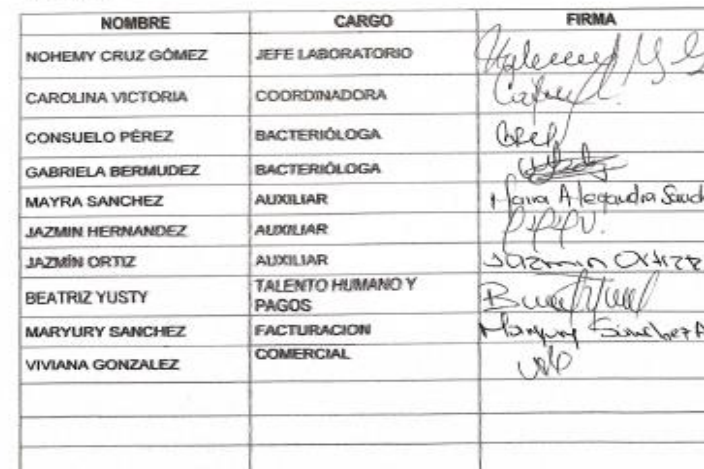 NOMBRE CARGO FIRMA
NOHEMY CRUZ GÓMEZ JEFE LABORATORIO
CAROLINA VICTORIA COORDINADORA
CONSUELO PÉREZ BACTERIÓLOGA
GABRIELA BERMUDEZ BACTERIÓLOGA
MAYRA SANCHEZ AUXILIAR Maira Alejandra
JAZMIN HERNANDEZ AUXILIAR
JAZMÍN ORTIZ AUXILIAR Jazmin Ortiz
BEATRIZ YUSTY TALENTO HUMANO Y
PAGOS
MARYURY SANCHEZ FACTURACION Maryury Sanchez A
VIVIANA GONZALEZ COMERCIAL